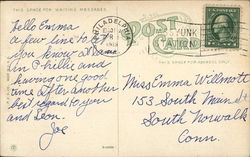 THIS SPACE FOR WRITING MESSAGES
Hello Emma
a few line to let
you know I am
in Phillie and
having one good
time after another
best regard to you
and Leon.
Joe
PHILADELPHIA
POST
THIS SPACE FOR ADDRESS ONLY
Miss Emma Willmott
153 South Main St
South Norwalk
Conn.